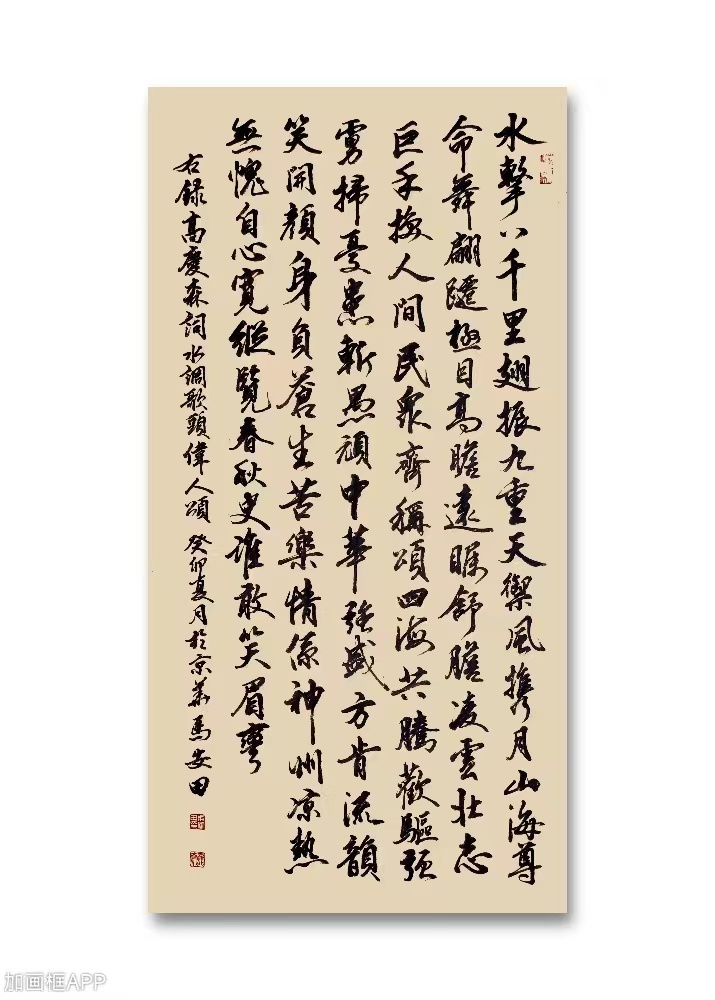 水擊八千里翅振九重天禦風携月山海尊
命舞翩躚極目高瞻遠矚舒膽凌雲壯志
巨手換人間民衆齊稱頌四海共騰歡驅強
虜掃憂患斬愚頑中華強盛方肯流韻
笑開顔身負蒼生苦樂情係神州凉熱
無愧自心寬縱覽春秋史誰敢笑眉彎
右録高慶森詞水調歌頭偉人頌 癸卯夏月於京華馬安田
加画框APP